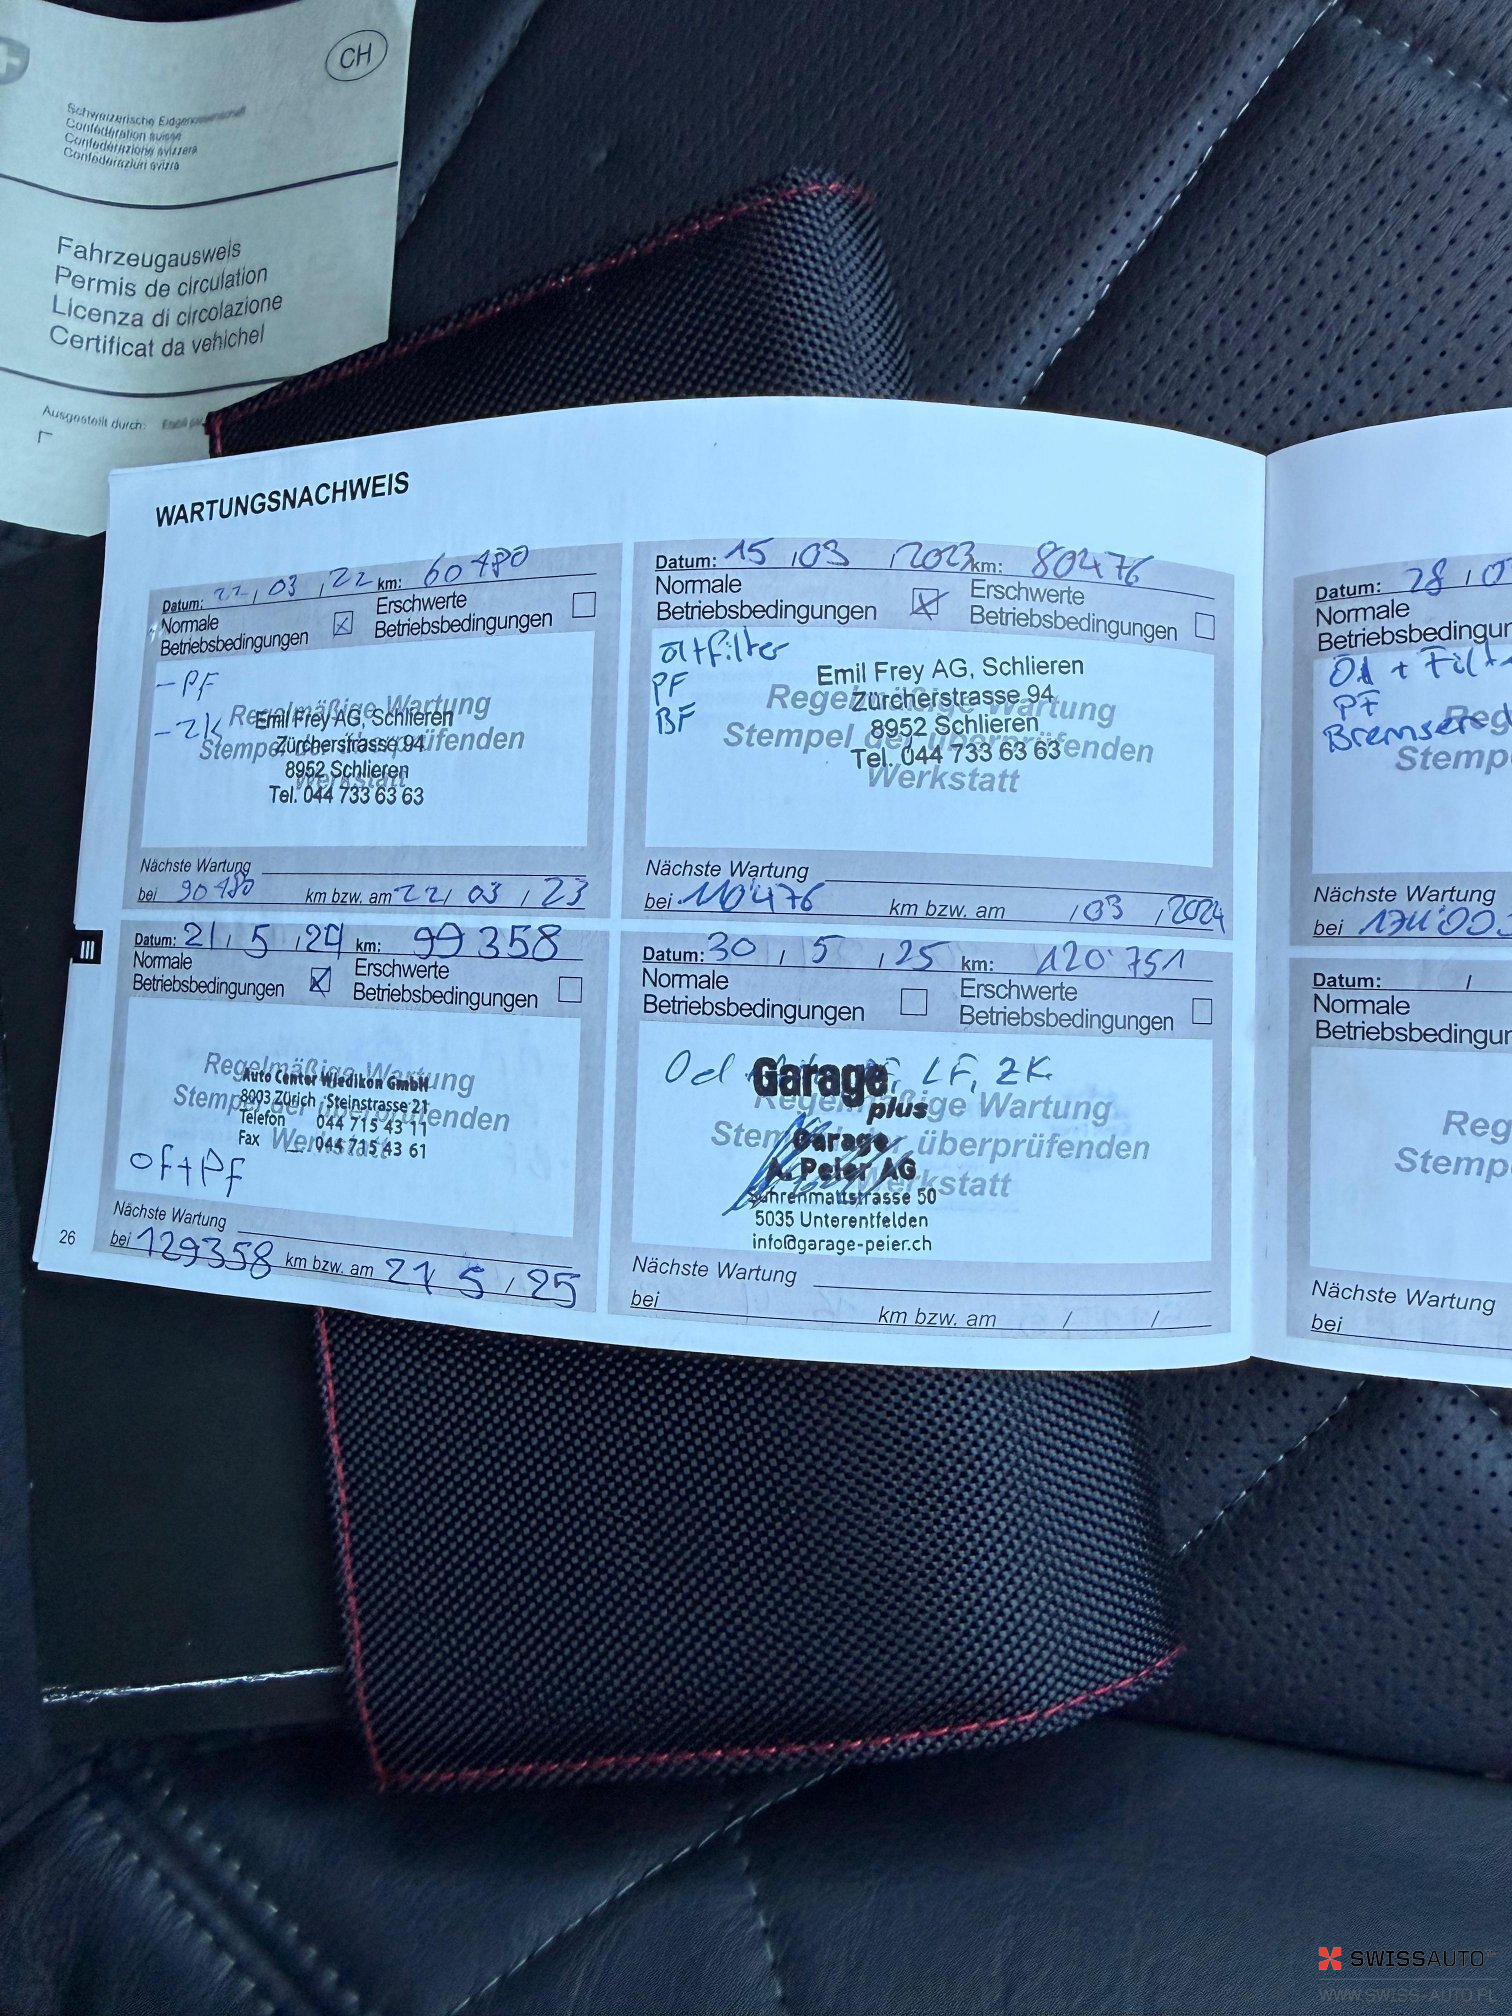 CH
Schweizerische Eidgenossenschaft
Confédération suisse
Confederazione svizzera
Confederaziun svizra
Fahrzeugausweis
Permis de circulation
Licenza di circolazione
Certificat da vehichel
Ausgestellt durch:
WARTUNGSNACHWEIS
Datum: 22 / 03 / 22 km: 60480
Normale
Betriebsbedingungen
Erschwerte
Betriebsbedingungen
- PF
- ZK
Regelmäßige Wartung
Stempel der überprüfenden
Werkstatt
Emil Frey AG, Schlieren
Zürcherstrasse 94
8952 Schlieren
Tel. 044 733 63 63
Nächste Wartung
bei 90480 km bzw. am 22 / 03 / 23
Datum: 15 / 03 / 2023 km: 80476
Normale
Betriebsbedingungen
Erschwerte
Betriebsbedingungen
PF
BF
Regelmäßige Wartung
Stempel der überprüfenden
Werkstatt
Emil Frey AG, Schlieren
Zürcherstrasse 94
8952 Schlieren
Tel. 044 733 63 63
Nächste Wartung
bei 110476 km bzw. am / 03 / 2024
Datum: 21 / 5 / 24 km: 99358
Normale
Betriebsbedingungen
Erschwerte
Betriebsbedingungen
Regelmäßige Wartung
Stempel der überprüfenden
Werkstatt
Auto Center Wiedikon GmbH
8003 Zürich · Steinstrasse 21
Telefon 044 715 43 11
Fax 044 715 43 61
OF+PF
Nächste Wartung
bei 129358 km bzw. am 21 / 5 / 25
Datum: 30 / 5 / 25 km: 120'751
Normale
Betriebsbedingungen
Erschwerte
Betriebsbedingungen
LF, ZK
Regelmäßige Wartung
Stempel der überprüfenden
Werkstatt
Garage
plus
Garage
A. Peier AG
Suhrenmattstrasse 50
5035 Unterentfelden
info@garage-peier.ch
Nächste Wartung
bei km bzw. am / /
26
III
Datum: 28 /
Normale
Betriebsbedingu
PF
Reg
Stemp
Nächste Wartung
bei
Datum: /
Normale
Betriebsbedingu
Reg
Stemp
Nächste Wartung
bei
SWISSAUTO
WWW.SWISS-AUTO.PL